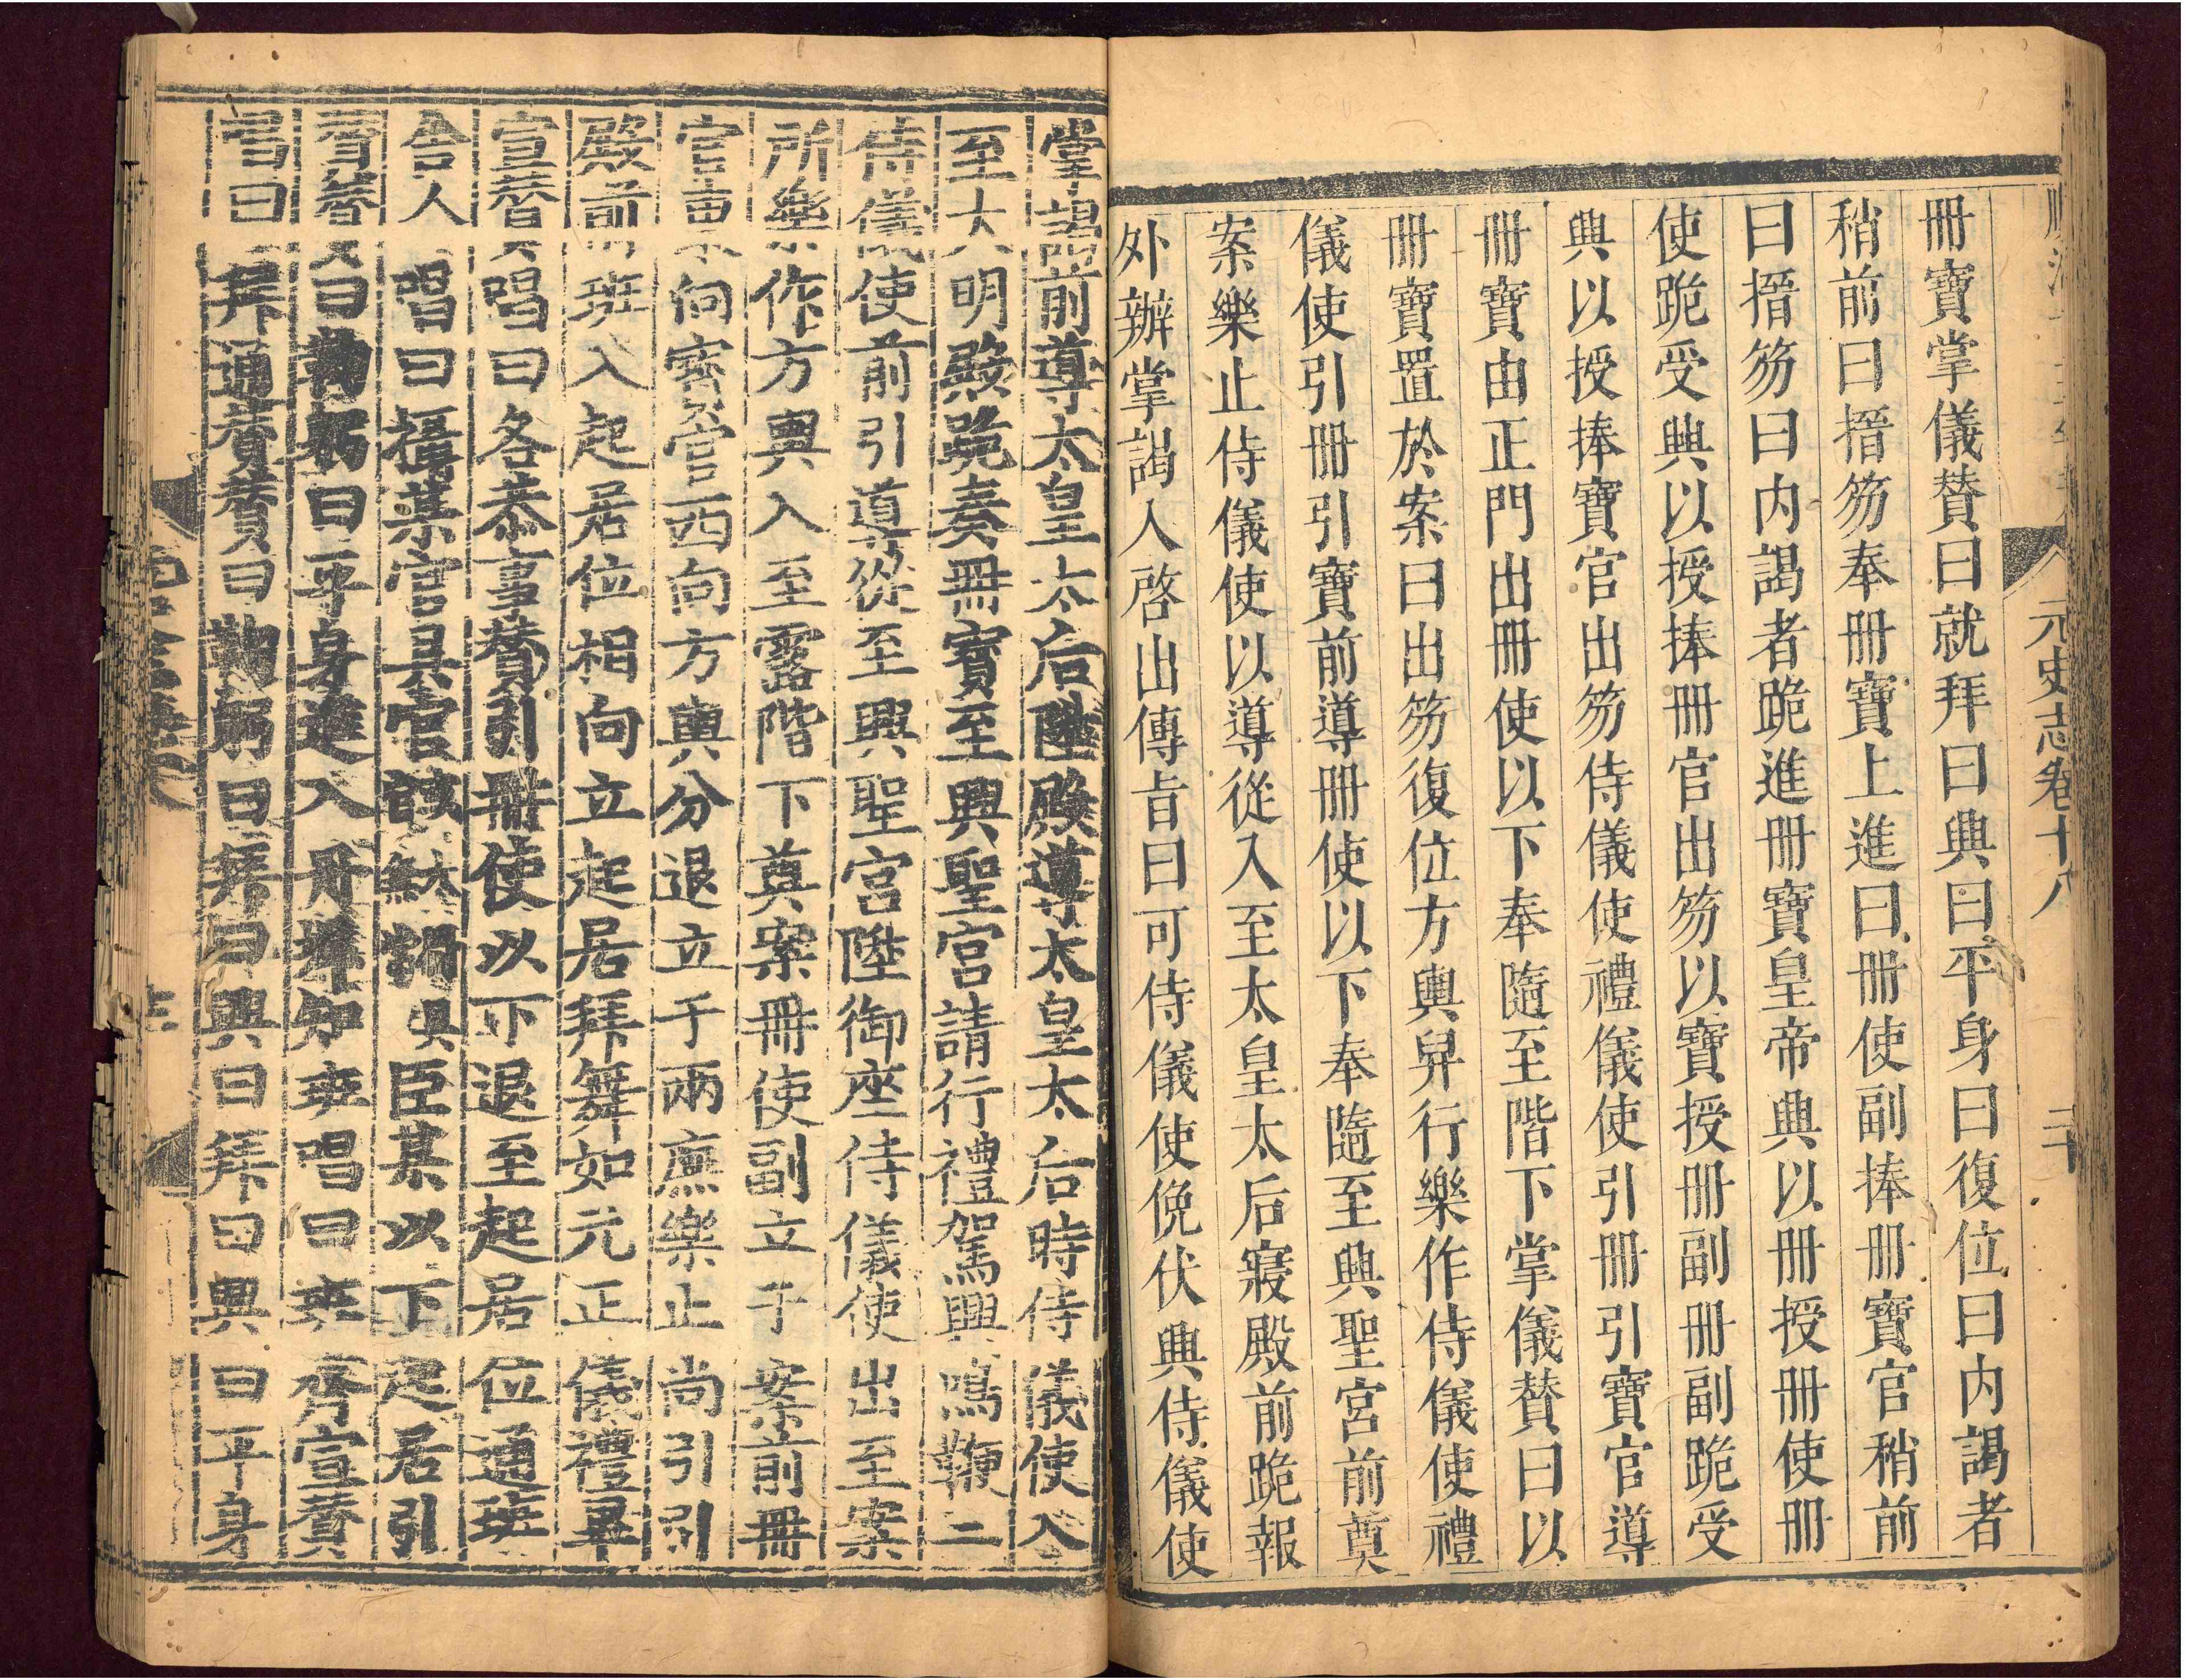 元史志卷十八 二十
冊寶掌儀贊曰就拜曰興曰平身曰復位曰内謁者
稍前曰搢笏奉冊寶上進曰冊使副捧冊寶官稍前
曰搢笏曰内謁者跪進冊寶皇帝興以冊授冊使冊
使跪受興以授捧冊官出笏以寶授冊副冊副跪受
興以授捧寶官出笏侍儀使禮儀使引冊引寶官導
冊寶由正門出冊使以下奉隨至階下掌儀贊曰以
冊寶置於案曰出笏復位方輿舁行樂作侍儀使禮
儀使引冊引寶前導冊使以下奉隨至興聖宮前奠
案樂止侍儀使以導從入至太皇太后寢殿前跪報
外辦掌謁入啓出傳旨曰可侍儀使俛伏興侍儀使
掌謁前導太皇太后陞殿導太皇太后時侍儀使入
至大明殿跪奏冊寶至興聖宮請行禮駕興鳴鞭二
侍儀使前引導從至興聖宮陞御座侍儀使出至案
所樂作方輿入至露階下奠案冊使副立于案前冊
官東向寶官西向方輿分退立于兩廡樂止尚引引
殿前班入起居位相向立起居拜舞如元正儀禮畢
宣贊唱曰各恭事贊引冊使以下退至起居位通班
舍人唱曰攝某官具官該臣某以下起居引
贊曰鞠躬曰平身進入丹墀知班唱曰班齊宣贊
唱曰拜通贊贊曰鞠躬曰拜曰興曰拜曰興曰平身